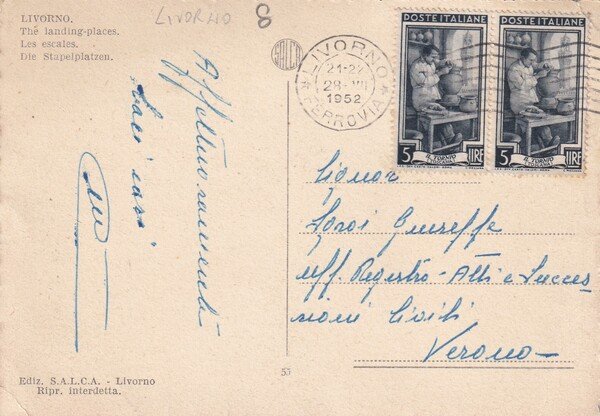 LIVORNO.
The landing-places.
Les escales.
Die Stapelplatzen.
LIVORNO
8
SALCA
LIVORNO
21-22
28 VII
1952
FERROVIA
POSTE ITALIANE
5 LIRE
IL TORNIO
POSTE ITALIANE
5 LIRE
IL TORNIO
Affettuosamente
baci cari
Signor
Giuseppe
uff. Registro - Atti e Succes
sioni Civili
Verona
Ediz. S.A.L.C.A. - Livorno
Ripr. interdetta.
55